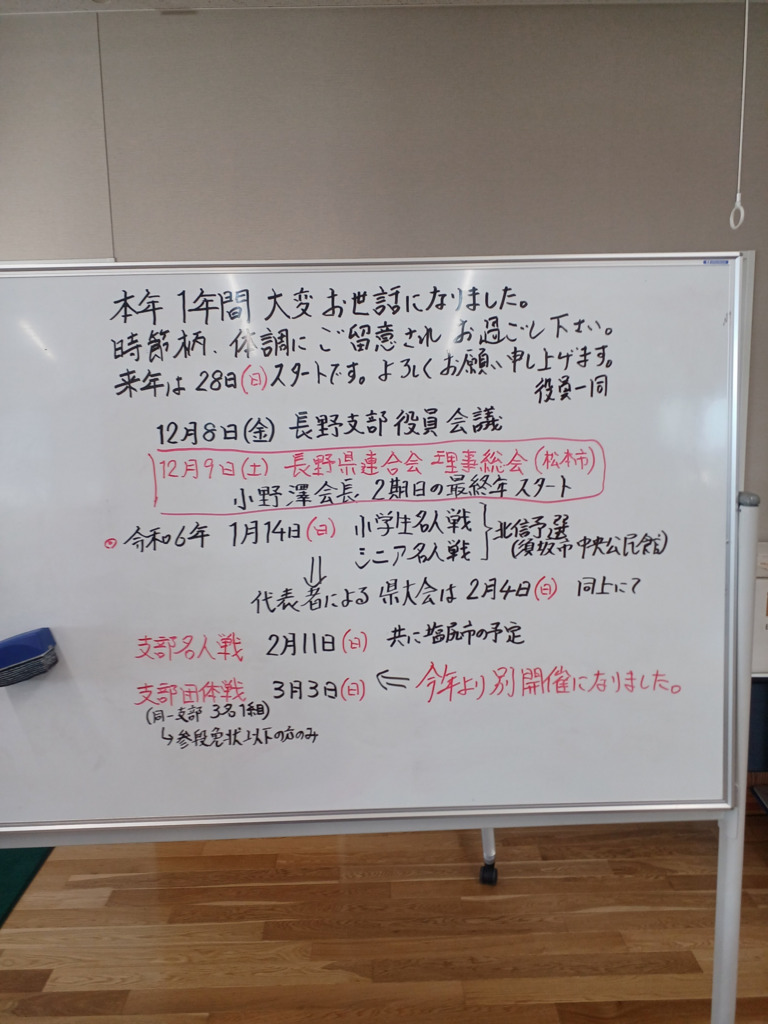 本年 1年間 大変 お世話になりました。
時節柄、体調に ご留意され お過ごし下さい。
来年は 28日(日)スタートです。よろしくお願い申し上げます。
役員一同
12月8日(金) 長野支部役員会議
12月9日(土) 長野県連合会 理事総会(松本市)
小野澤会長 2期目の最終年スタート
令和6年 1月14日(日) 小学生名人戦
シニア名人戦
北信予選
(須坂市中央公民館)
⇓
代表者による 県大会は 2月4日(日) 同上にて
支部名人戦 2月11日(日) 共に塩尻市の予定
支部団体戦 3月3日(日) ⇐ 今年より別開催になりました。
(同一支部 3名1組)
↳参段免状以下の方のみ